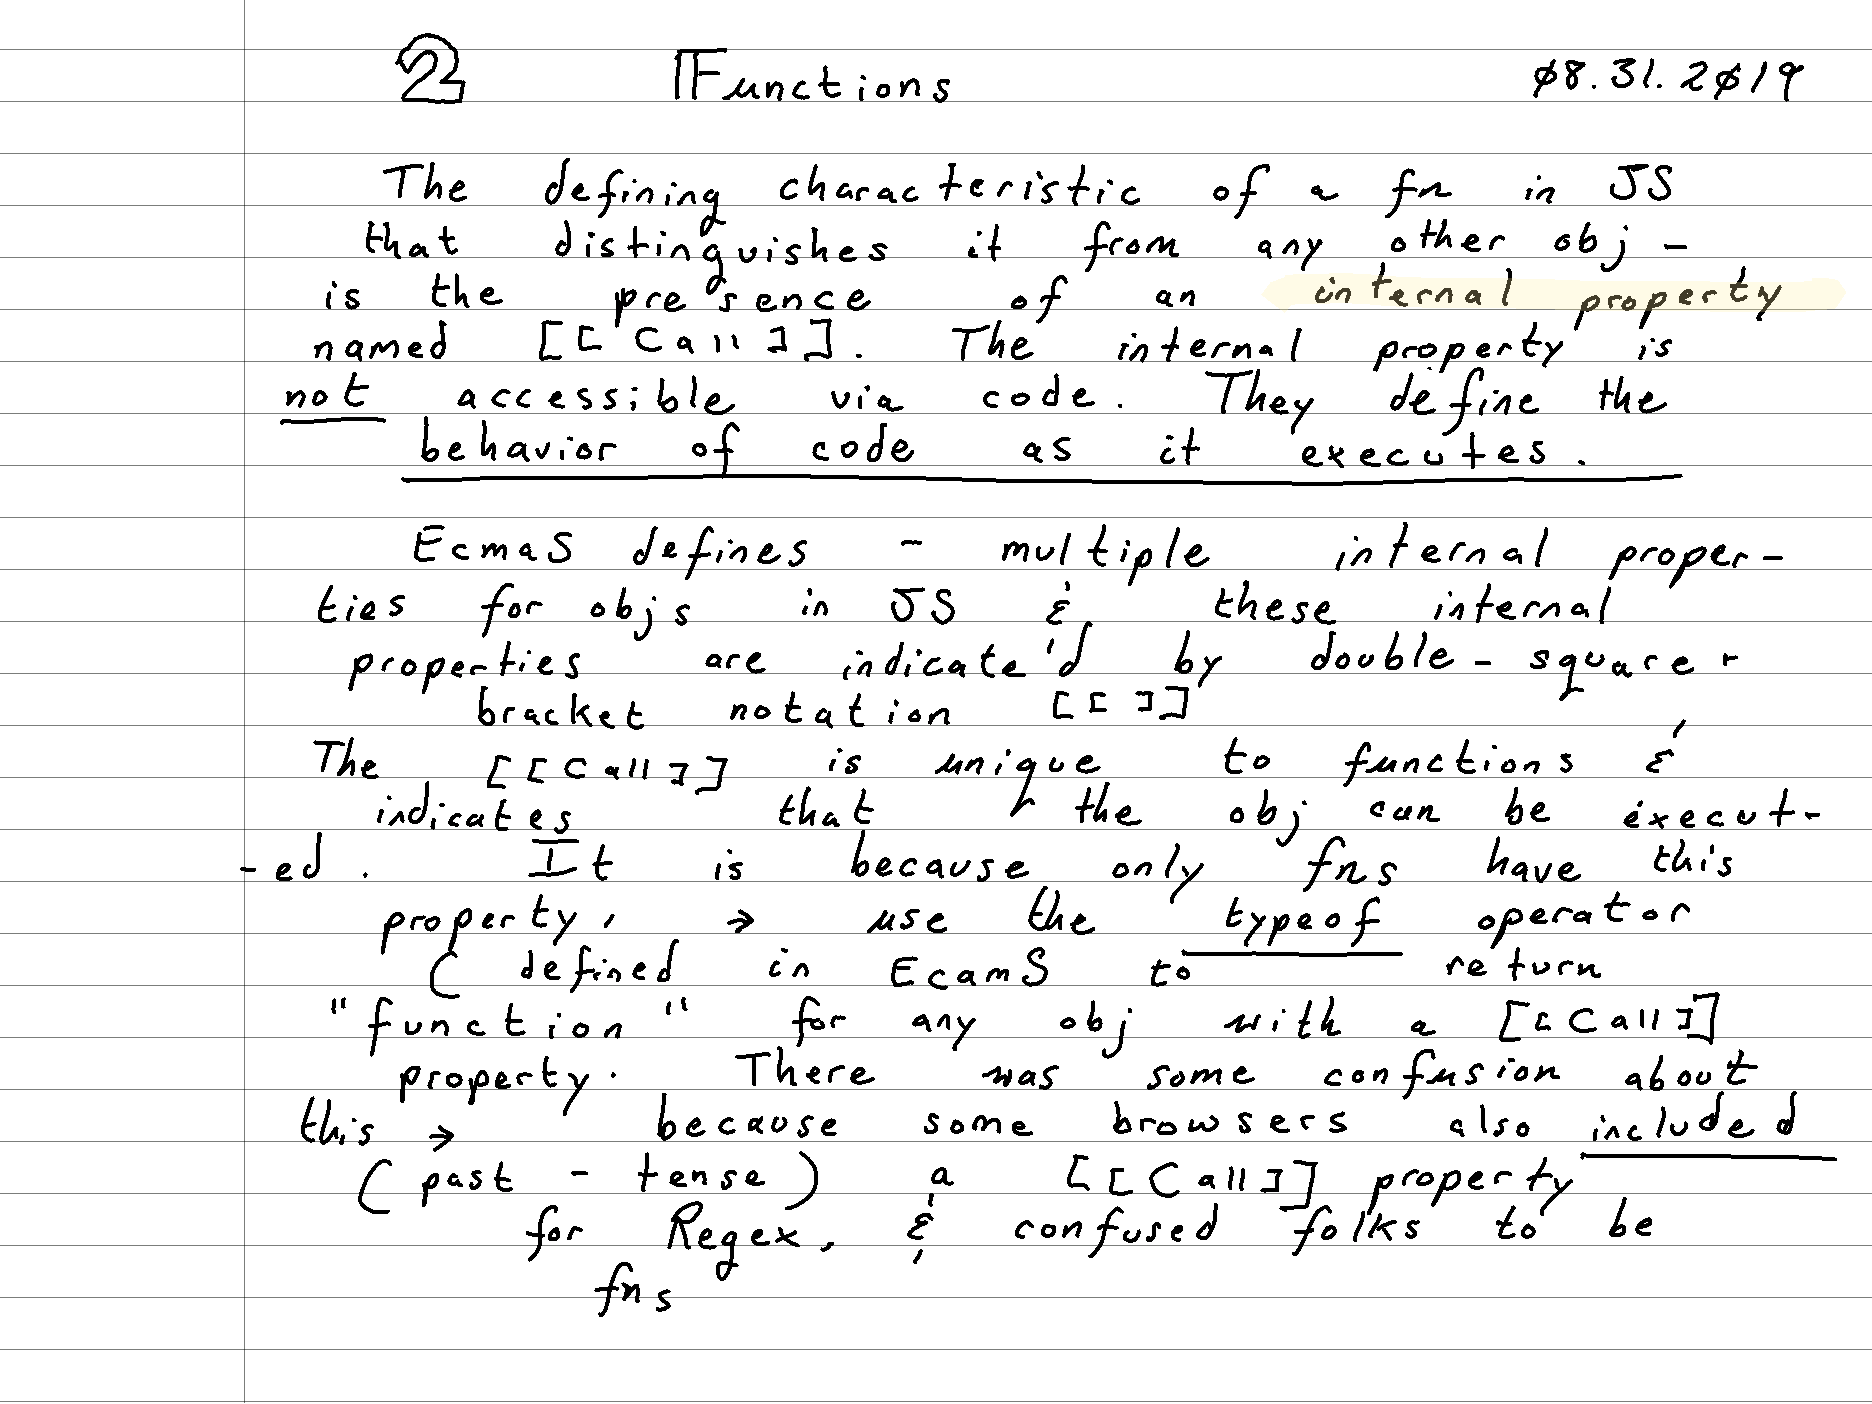 2 Functions 08.31.2019
The defining characteristic of a fn in JS
that distinguishes it from any other obj -
is the presence of an internal property
named [[Call]]. The internal property is
not accessible via code. They define the
behavior of code as it executes.
EcmaS defines - multiple internal proper-
ties for objs in JS & these internal
properties are indicate'd by double-square-
bracket notation [[ ]]
The [[Call]] is unique to functions &
indicates that the obj can be execut-
-ed. It is because only fns have this
property, → use the typeof operator
(defined in EcamS to return
"function" for any obj with a [[Call]]
property. There was some confusion about
this → because some browsers also included
(past - tense) a [[Call]] property
for Regex, & confused folks to be
fns